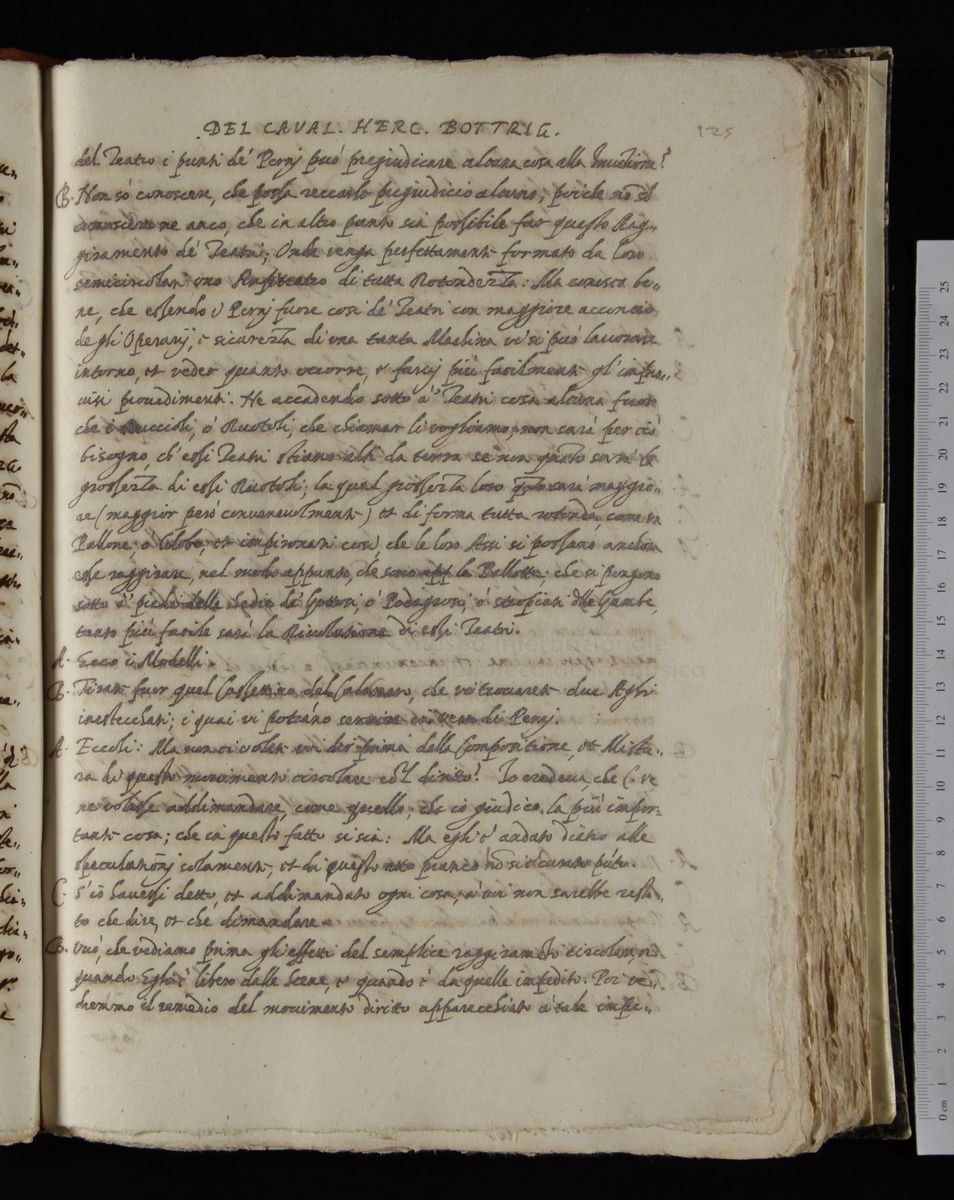 DEL CAVAL. HERC. BOTTRIG. 125
del Teatro i punti de' Pernj può pregiudicare alcuna cosa alla Inuentione?
B. Non sò conoscere, che possa reccarlo pregiudicio alcuno; perche nō sò
conoscere ne anco, che in altro punto sia possibile far questo Rag-,
giramento de' Teatri; Onde venga perfettamente formato da loro
semicircolari uno Anfiteatro di tutta Rotondezza: Ma conosco be-,
ne, che essendo i Pernj fuore cosi de' Teatri con maggiore acconcio
degli Operarij, e sicurezza di una tanta Machina vi si può lauorare
intorno, et veder quanto occorre, et farsj più facilmente gl'impro-,
uisi prouedimenti. Ne accadendo sotto à Teatri cosa alcuna fuor
che i Ruccioli, ò Ruotoli, che chiamar li vogliamo, non sarà per ciò
bisogno, ch'essi Teatri stiano alti da terra se non quanto sarà la
grossezza di essi Ruotoli; la qual grossezza loro sarà maggio-,
re (maggior però conueneuolmente) et di forma tutta rotonda come un
Pallone, ò Globo, et impironati cosi, che le loro Assi si possano anchora
esse raggirare, nel modo appunto, che sono le Ballotte che si pongono
sotto i piedi delle Sedie de' Gottosi, ò Podagrosi, ò stroppiati delle Gambe,
tanto più facile sarà la Riuolutione di essi Teatri.
A. Ecco i Modelli.
B. Tirate fuor quel Cassettino del Calamaro, che vi trouarete due Aghi
inesteccati; i quai vi potrāno seruire in vece di Pernj.
A. Eccoli: Ma non ci volete voi dir prima della Compositione, et Mistu-,
ra di questo mouimento circolare col diritto? Io credeua, che C. ve
ne volesse addimandare, come quello; che io giudico la più impor-
tante cosa; che in questo fatto si sia: Ma egli è andato dietro alle
speculationj solamente, et di questo atto pratico nō si è curato pūto.
C. S'io hauessi detto, et addimandato ogni cosa, à voi non sarebbe resta-
to che dire, et che dimandare.
B. Vuò, che vediamo prima gli effetti del semplice raggiramēto circolare
quando Egli è libero dalle Scene, et quando è da quelle impedito. Poi ve-
dremmo il remedio del mouimento diritto apparecchiato à tale impe-,